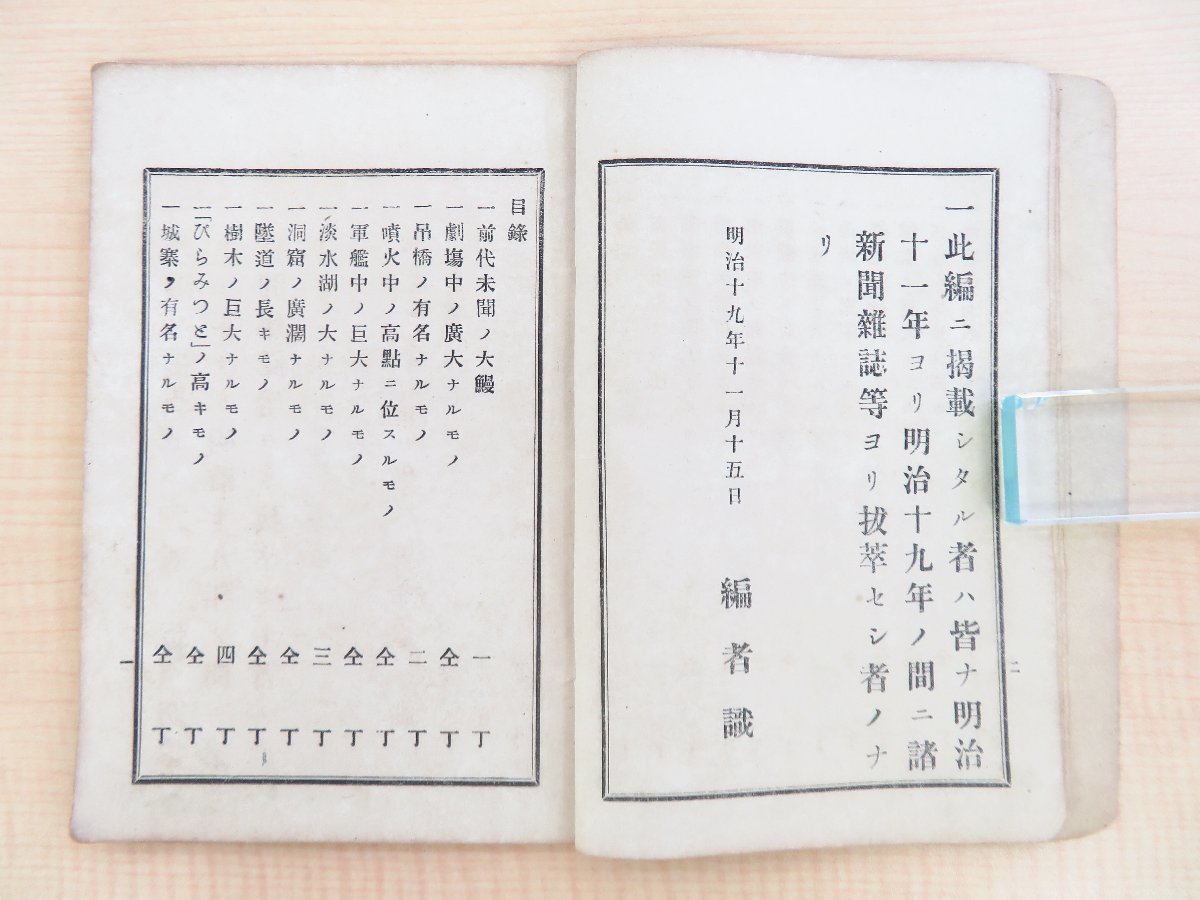 二
一此編ニ揭載シタル者ハ皆ナ明治
十一年ヨリ明治十九年ノ間ニ諸
新聞雜誌等ヨリ拔萃セシ者ノナ
リ
明治十九年十一月十五日 編者識
目錄
一前代未聞ノ大鰻 一丁
一劇場中ノ廣大ナルモノ 仝丁
一吊橋ノ有名ナルモノ 二丁
一噴火中ノ高點ニ位スルモノ 仝丁
一軍艦中ノ巨大ナルモノ 仝丁
一淡水湖ノ大ナルモノ 三丁
一洞窟ノ廣濶ナルモノ 仝丁
一墜道ノ長キモノ 仝丁
一樹木ノ巨大ナルモノ 四丁
一「びらみつと」ノ高キモノ 仝丁
一城寨ノ有名ナルモノ 仝丁
一